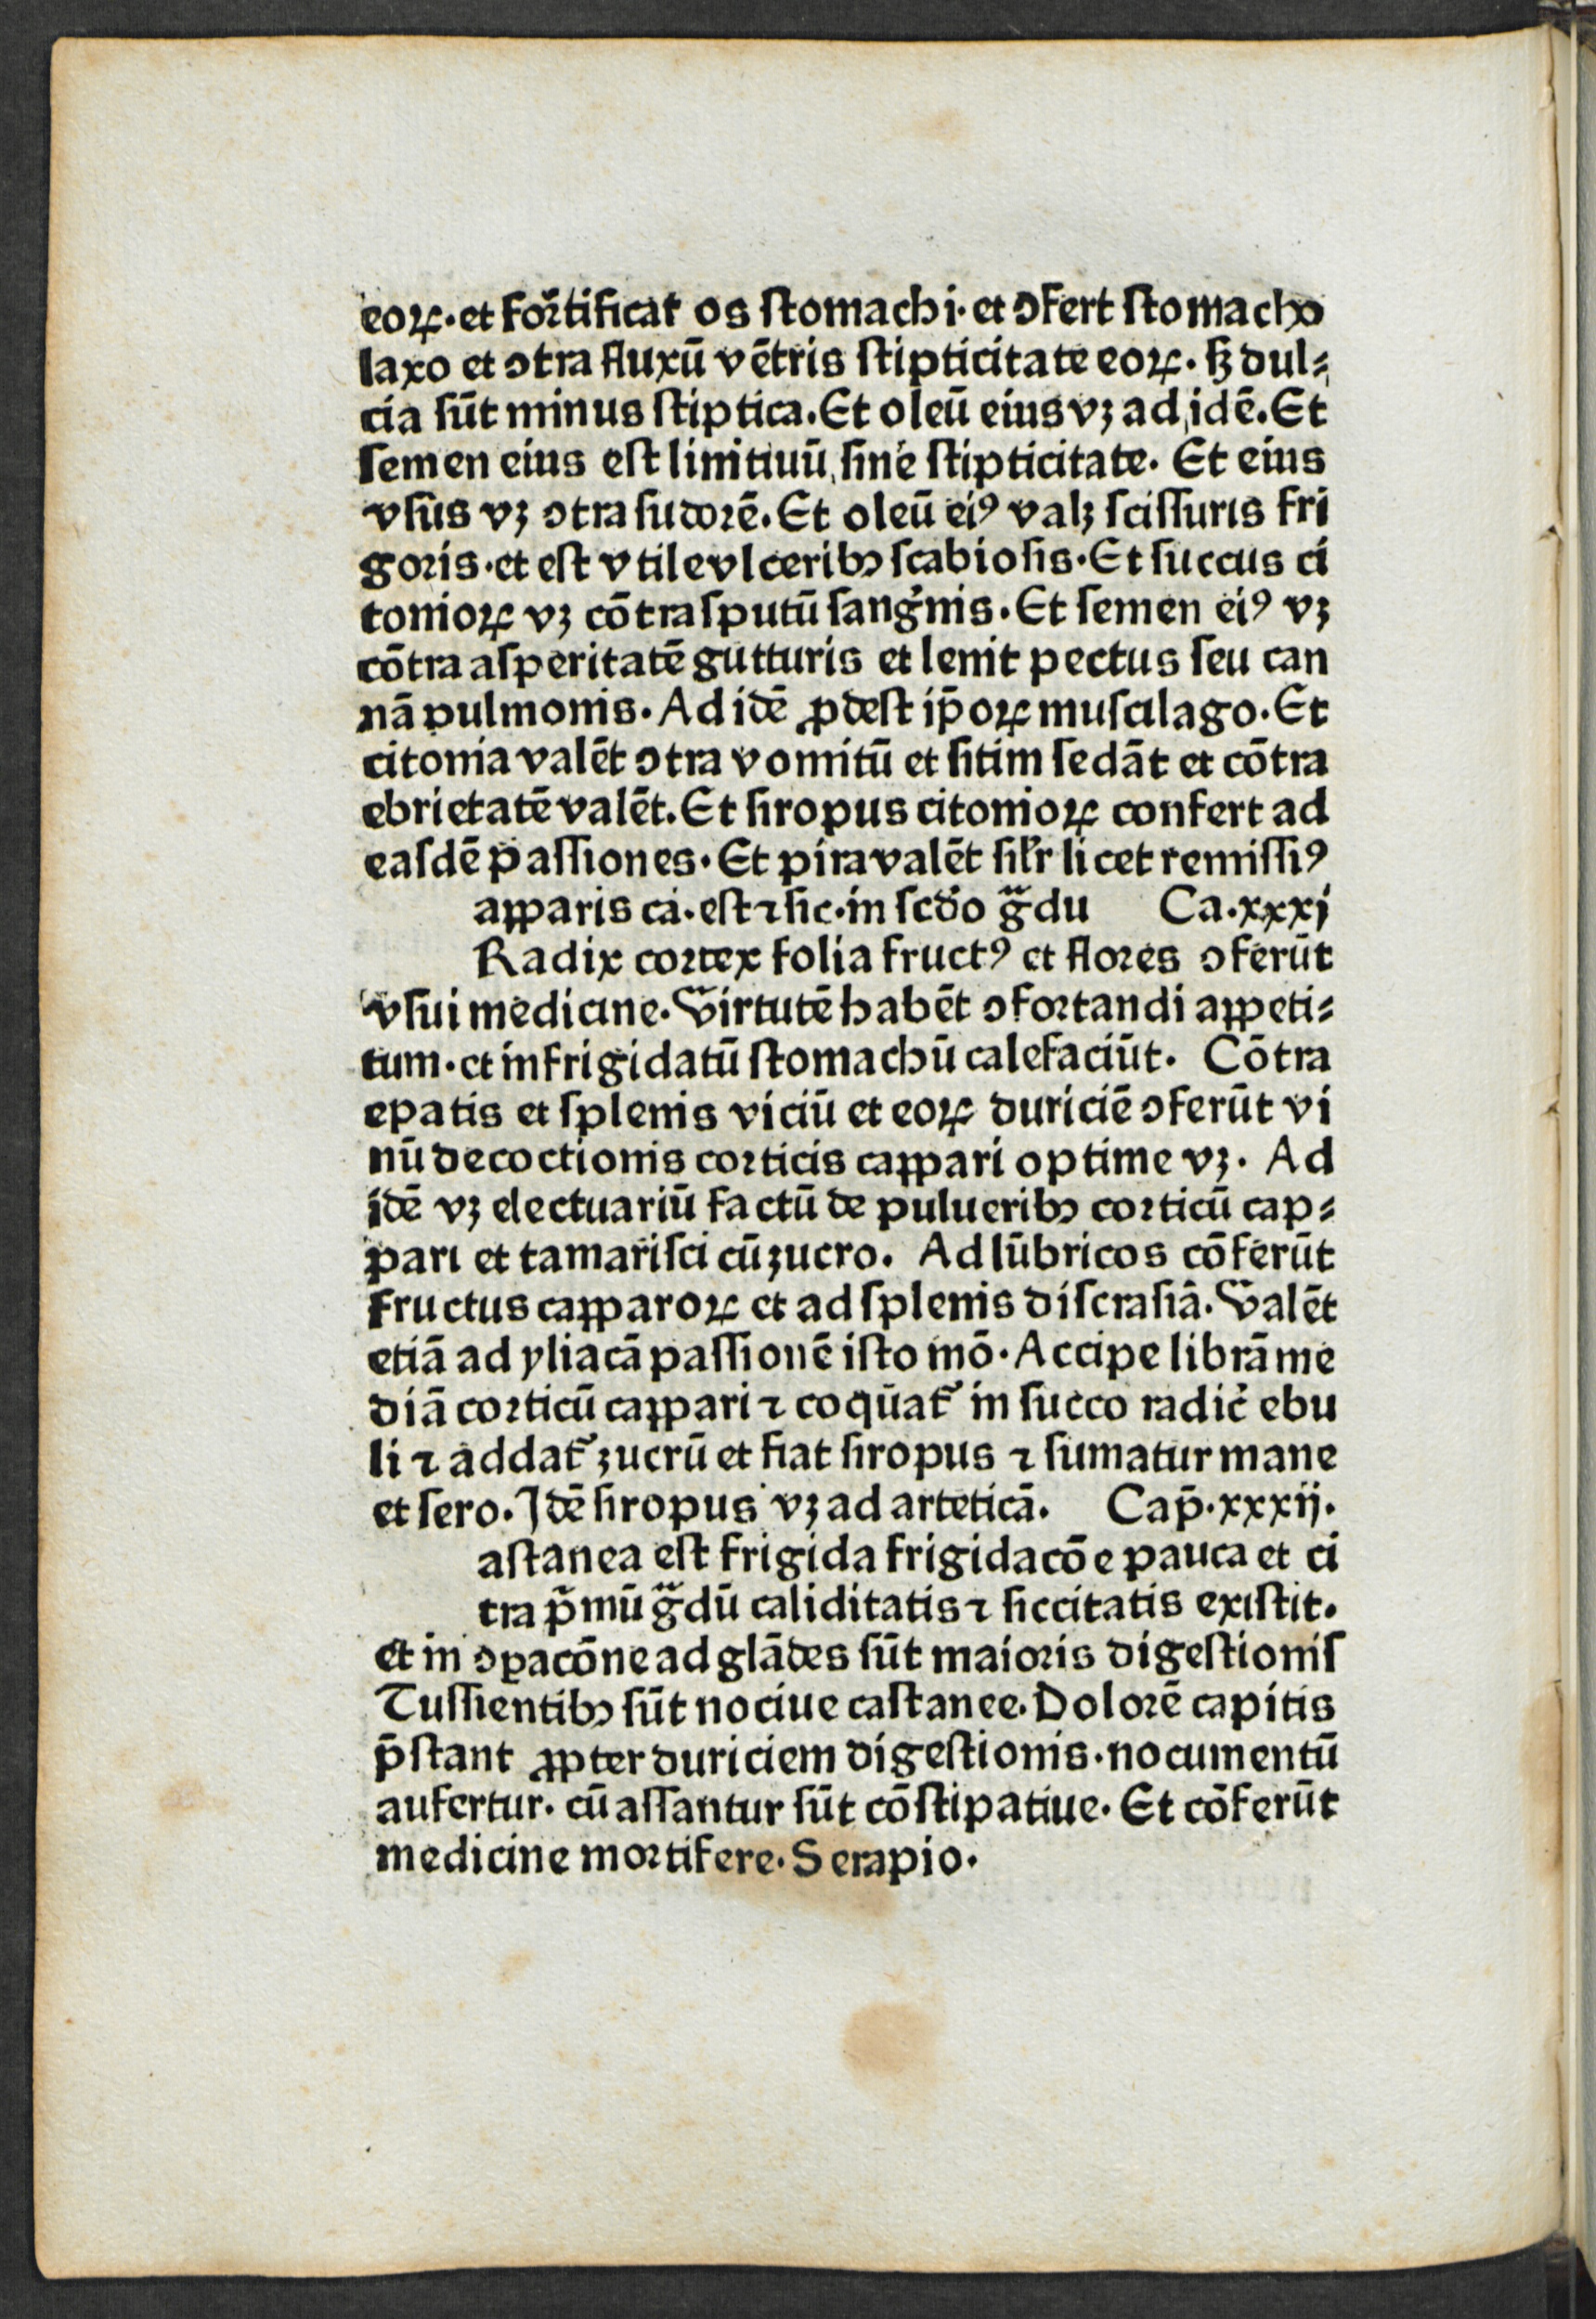 eoꝝ·et fortificat os ſtomachi·et ↄfert ſtomacho
laxo et ↄtra fluxū vētris ſtipticitate eoꝝ. ſꝫ dul⸗
cia ſūt minus ſtiptica. Et oleū eius vꝫ ad idē. Et
ſemen eius eſt linitiuū ſine ſtipticitate. Et eius
vſus vꝫ ↄtra ſudorē. Et oleū eiꝰ valꝫ ſciſſuris fri
goris·et eſt vtile vlceribꝫ ſcabioſis. Et ſuccus ci
tonioꝝ vꝫ cōtra ſputū ſangͥnis. Et ſemen eiꝰ vꝫ
cōtra aſperitatē gutturis et lenit pectus ſeu can
nā pulmonis. Ad idē ꝓdeſt ip̄oꝝ muſcilago. Et
citonia valēt ↄtra vomitū et ſitim ſedāt et cōtra
ebrietatē valēt. Et ſiropus citonioꝝ confert ad
eaſdē paſſiones. Et pira valēt ſiľr licet remiſſiꝰ
apparis ca·eſt ⁊ ſic·in ſcďo gᷓdu Ca.xxxj
Radix cortex folia fructꝰ et flores ↄferūt
vſui medicine. Virtutē habēt ↄfortandi appeti⸗
tum·et infrigidatū ſtomachū calefaciūt. Cōtra
epatis et ſplenis viciū et eoꝝ duriciē ↄferūt vi
nū decoctionis corticis cappari optime vꝫ. Ad
idē vꝫ electuariū factū de pulueribꝫ corticū cap⸗
pari et tamariſci cū zucro. Ad lūbricos cōferūt
fructus capparoꝝ et ad ſplenis diſcraſiā. Valēt
etiā ad yliacā paſſionē iſto mō. Accipe librā me
diā corticū cappari ⁊ coquāt᷑ in ſucco radic̄ ebu
li ⁊ addat᷑ zucrū et fiat ſiropus ⁊ ſumatur mane
et ſero. Idē ſiropus vꝫ ad artecticā. Cap̄.xxxij.
aſtanea eſt frigida frigidacōe pauca et ci
tra pͥmū gᷓdū caliditatis ⁊ ſiccitatis exiſtit.
et in ↄꝑacōne ad glādes ſūt maioris digeſtioniſ
Tuſſientibꝫ ſūt nociue caſtanee. Dolorē capitis
p̄ſtant ꝓpter duriciem digeſtionis·nocumentū
aufertur·cū aſſantur ſūt cōſtipatiue. Et cōferūt
medicine mortifere. Serapio.